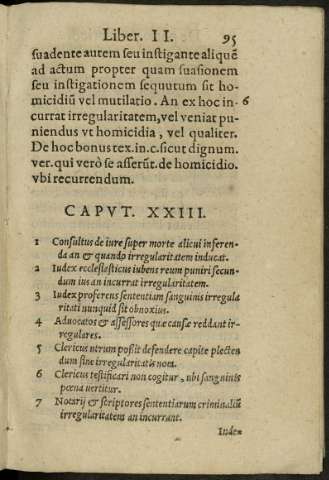 Liber. II. 95
suadente autem seu instigante aliquẽ
ad actum propter quam suasionem
seu instigationem sequutum sit ho-
micidiũ vel mutilatio. An ex hoc in- 6
currat irregularitatem, vel veniat pu-
niendus vt homicidia, vel qualiter.
De hoc bonus tex. in. c. sicut dignum.
ver. qui verò se asserũt. de homicidio.
vbi recurrendum.
CAPVT. XXIII.
1 Consultus de iure super morte alicui inferen-
da an & quando irregularitatem inducat.
2 Iudex ecclesiasticus iubens reum puniri secun-
dum ius an incurrat irregularitatem.
3 Iudex proferens sententiam sanguinis irregula
ritati nunquid sit obnoxius.
4 Aduocatos & assessores quæ causæ reddant ir-
regulares.
5 Clericus utrum possit defendere capite plecten
dum sine irregularitatis nota.
6 Clericus testificari non cogitur, ubi sanguinis
pœna vertitur.
7 Notarij & scriptores sententiarum criminaliũ
irregularitatem an incurrant.
Index